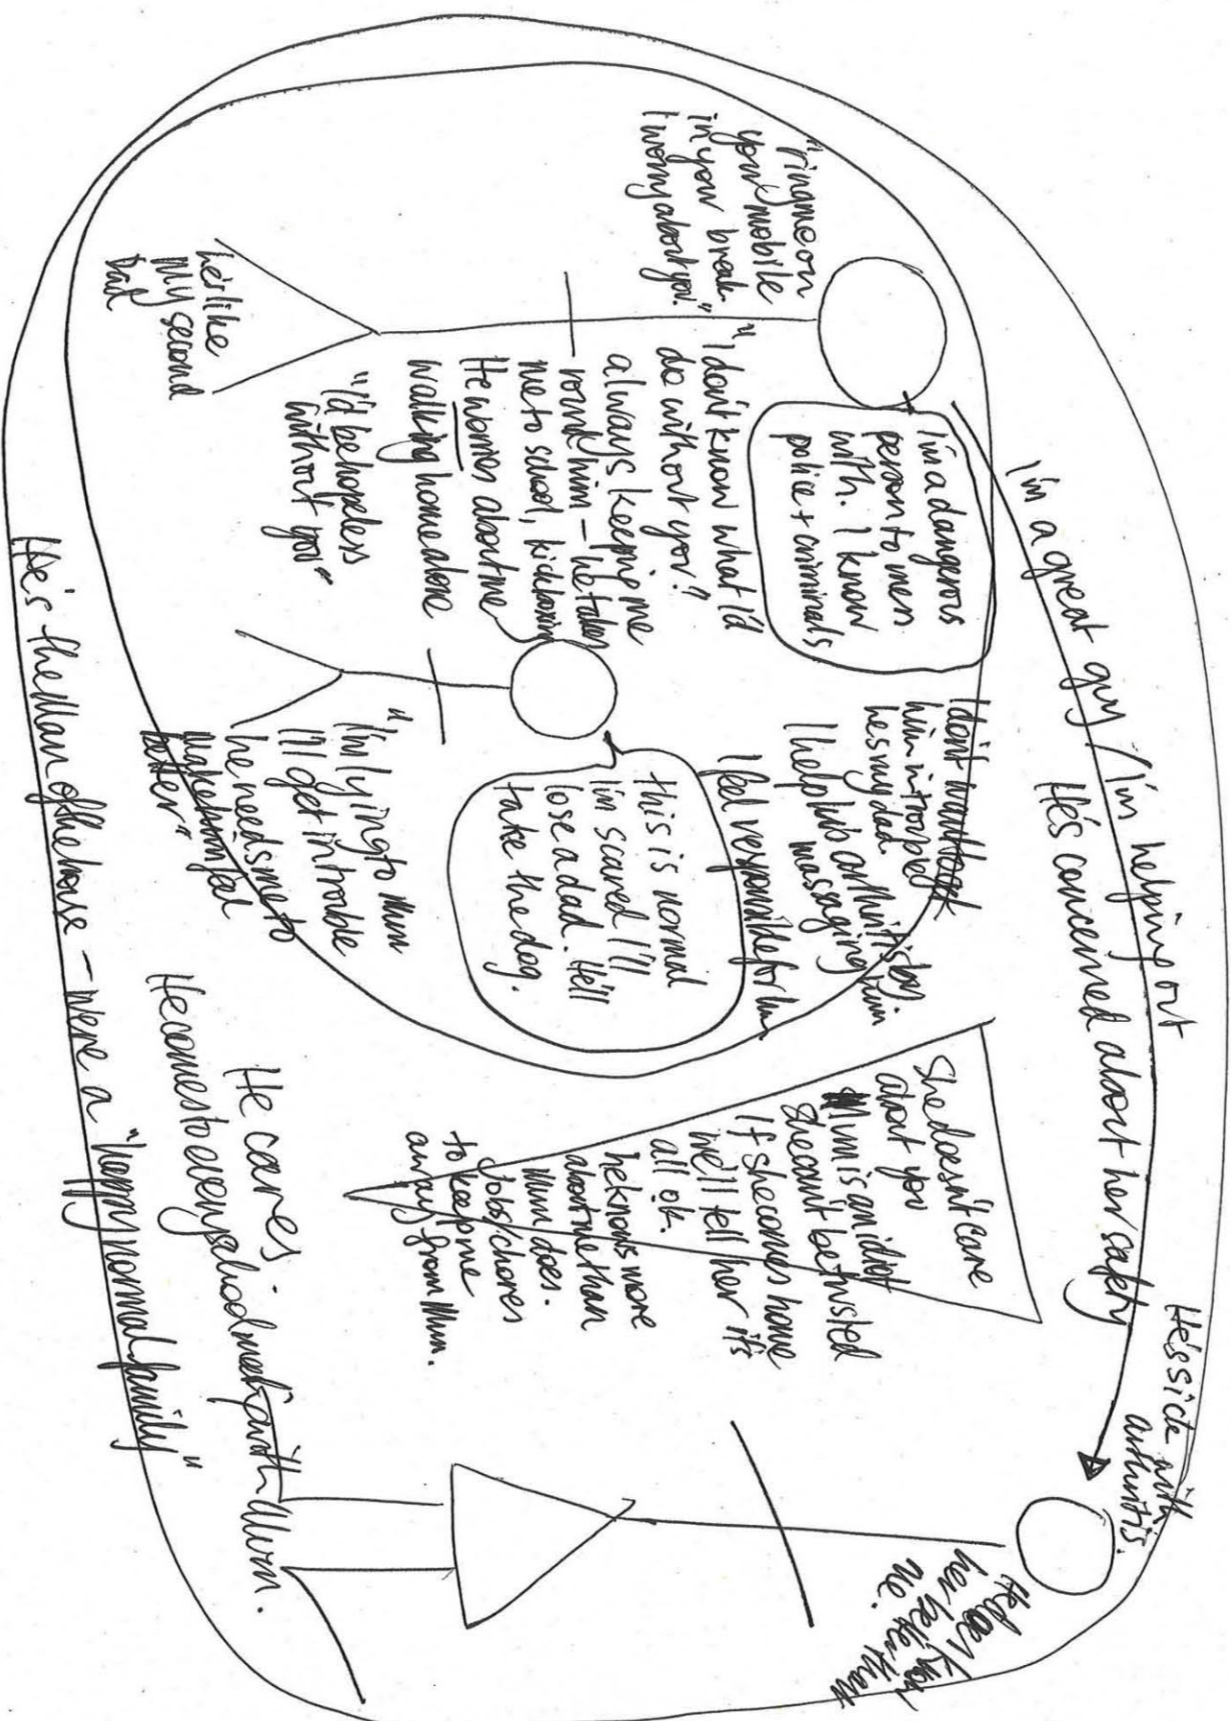 I'm a great guy / I'm helping out
He's concerned about her safety
He's sick with
arthritis.
"ring me on
your mobile
in your break.
I worry about you."
I'm a dangerous
person to men
with. I know
police + criminals
"I don't know what I'd
do without you?
always keeping me
round him – he takes
me to school, kickboxing
He worries about me
walking home alone
"I'd be hopeless
without you"
he's like
my second
Dad
I don't want to get
him in trouble
he's my dad.
I help his arthritis by
massaging him
I feel responsible for him
this is normal
I'm scared I'll
lose a dad. He'll
take the dog.
"I'm lying to Mum
I'll get in trouble
he needs me to
make him feel
better"
She doesn't care
about you
Mum is an idiot
She can't be trusted
If she comes home
we'll tell her it's
all ok.
he knows more
about me than
Mum does.
Jobs/chores
to keep me
away from Mum.
her better than
me.
He cares
He comes to every school meeting with Mum.
He's the Man of the house – we're a "happy normal family"